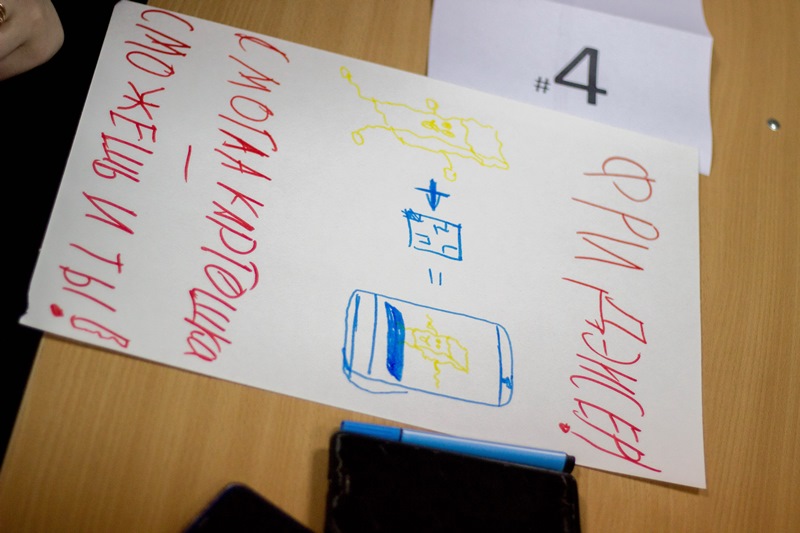 #4
ФРИДЖЕР!
+
=
СМОГЛА КАРТОШКА –
СМОЖЕШЬ И ТЫ!